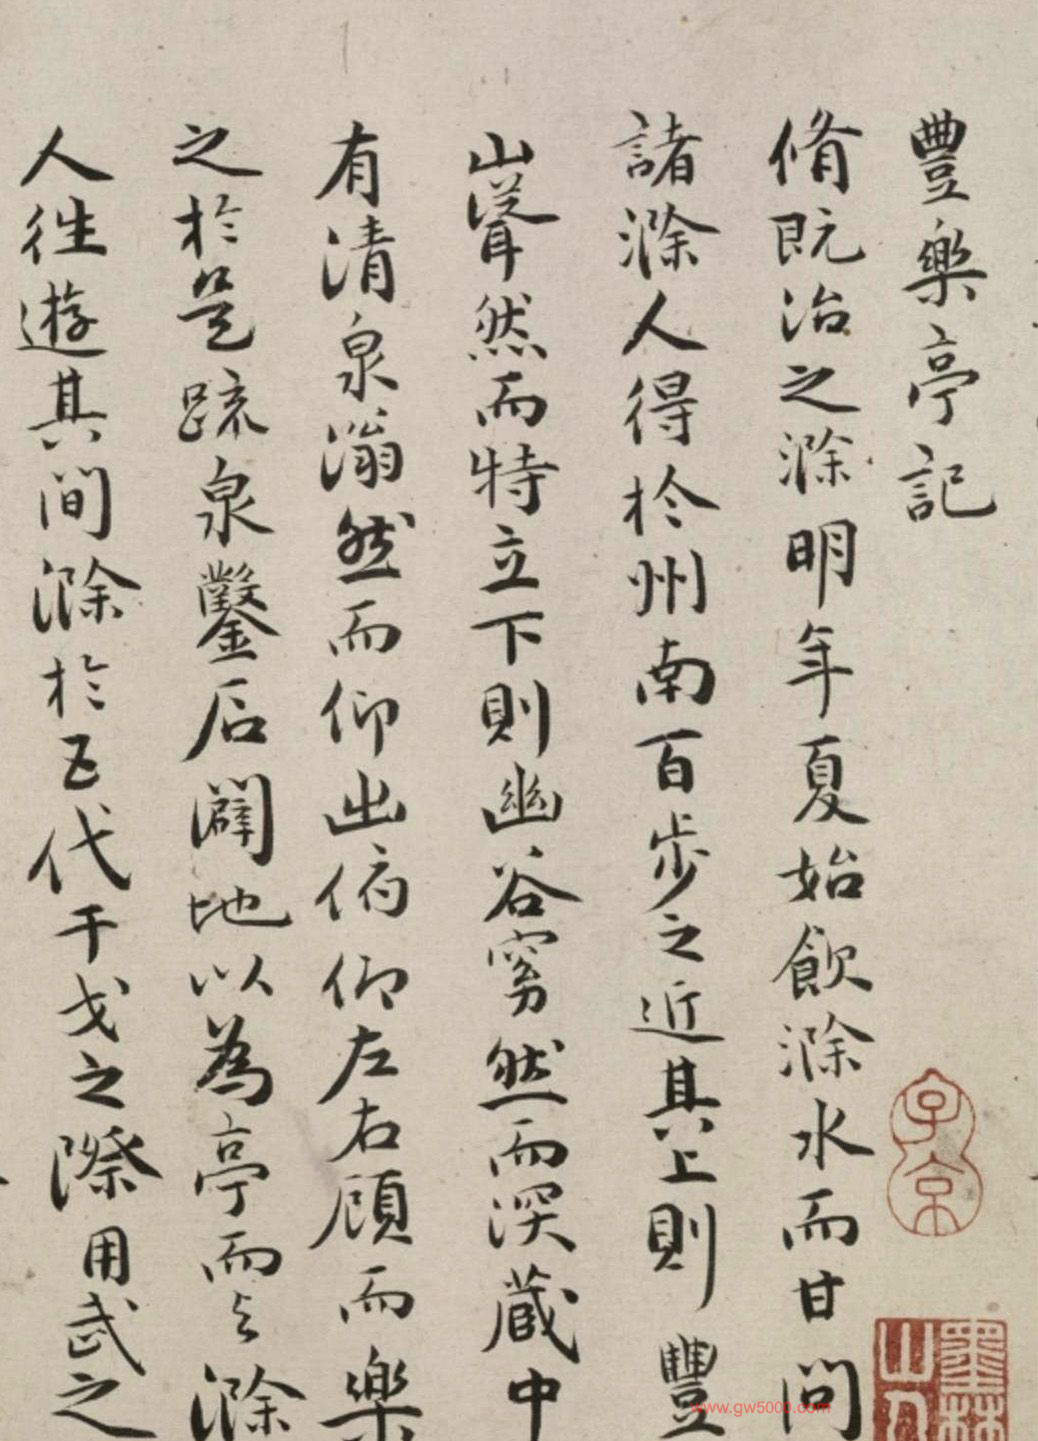 豐樂亭記
脩既治之滁明年夏始飲滁水而甘問
諸滁人得於州南百步之近其上則豐
山聳然而特立下則幽谷窈然而深藏中
有清泉滃然而仰出俯仰左右顧而樂
之於是疏泉鑿石闢地以為亭而與滁
人往遊其間滁於五代干戈之際用武之
子京
墨林山人
www.gw5000.com